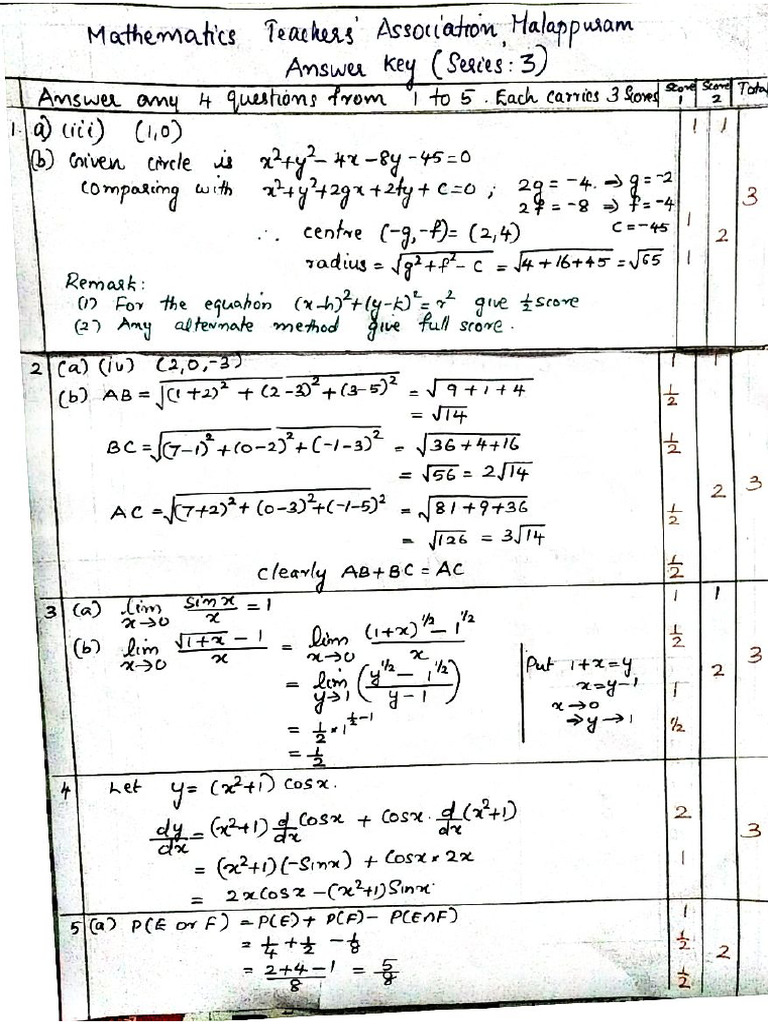 Mathematics Teachers' Association, Malappuram
Answer Key (Series: 3)
Answer any 4 questions from 1 to 5. Each carries 3 Scores Score 1 Score 2 Total
1 a) (iii) (1,0) 1 1
(b) Given circle is x²+y²-4x-8y-45=0
Comparing with x²+y²+2gx+2fy+c=0 ; 2g=-4 ⇒ g=-2
2f=-8 ⇒ f=-4 3
c=-45
∴ centre (-g,-f)=(2,4) 1 2
radius = √(g²+f²-c) = √(4+16+45) = √65 1
Remark:
(1) For the equation (x-h)²+(y-k)²=r² give ½ score
(2) Any alternate method give full score.
2 (a) (iv) (2,0,-3) 1 1
(b) AB = √((1+2)²+(2-3)²+(3-5)²) = √(9+1+4) ½
= √14
BC = √((7-1)²+(0-2)²+(-1-3)²) = √(36+4+16) ½
= √56 = 2√14 2 3
AC = √((7+2)²+(0-3)²+(-1-5)²) = √(81+9+36) ½
= √126 = 3√14
Clearly AB+BC = AC ½
3 (a) lim x→0 sinx/x = 1 1 1
(b) lim x→0 (√(1+x) - 1)/x = lim x→0 ((1+x)^½ - 1^½)/x ½
= lim y→1 ((y^½ - 1^½)/(y-1)) Put 1+x=y 2 3
x=y-1 1
x→0
= ½ × 1^(½-1) ⇒ y→1 ½
= ½
4 Let y = (x²+1) cosx.
dy/dx = (x²+1) d/dx cosx + cosx · d/dx (x²+1) 2 3
= (x²+1)(-sinx) + cosx × 2x 1
= 2x cosx - (x²+1) sinx
5 (a) P(E or F) = P(E)+ P(F) - P(E∩F) 1
= ¼ + ½ - ⅛ ½ 2
= (2+4-1)/8 = 5/8 ½